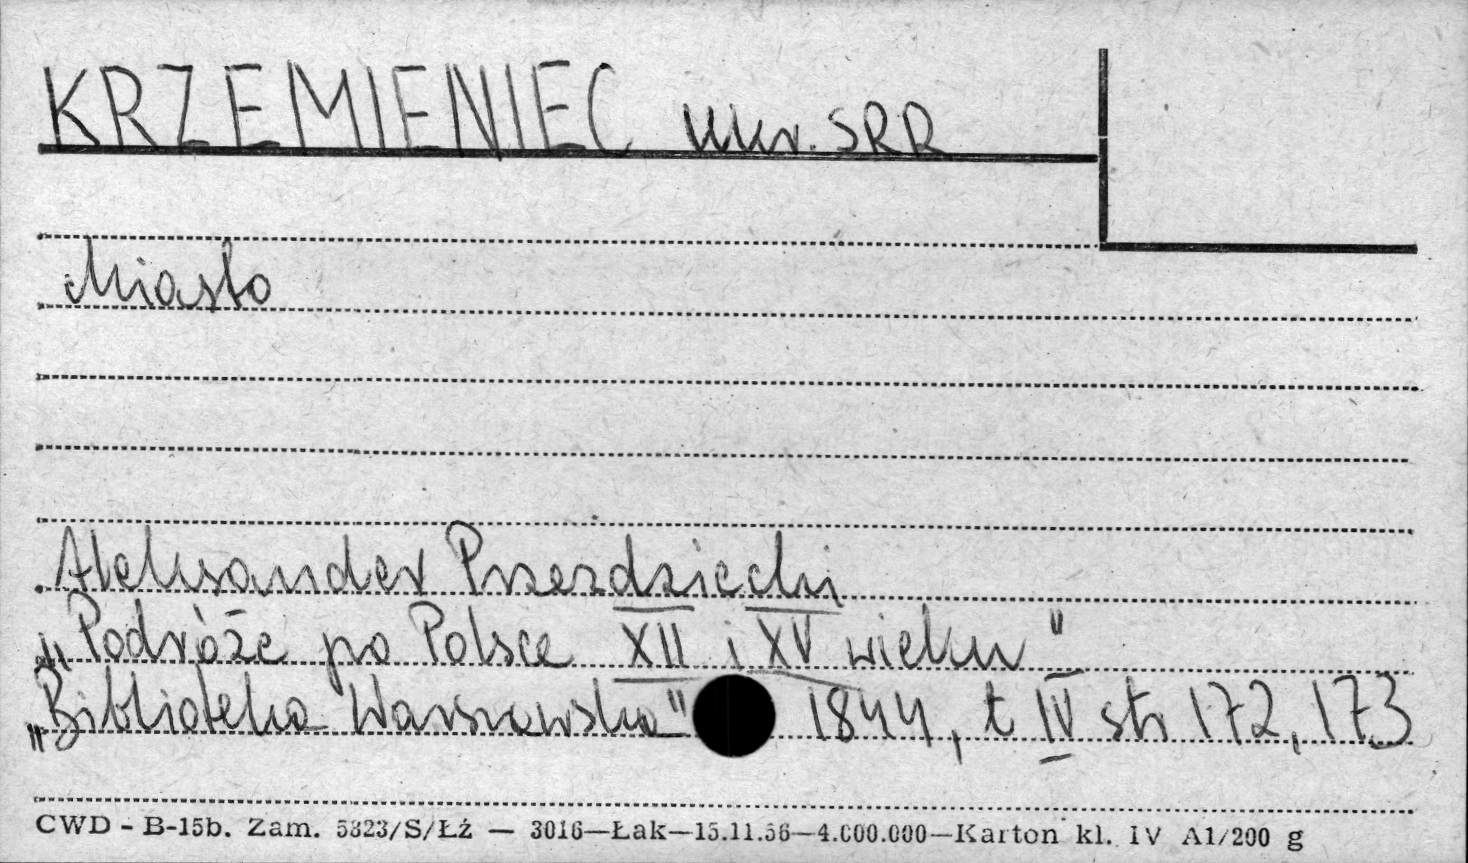 KRZEMIENIEC Ukr. SRR
Miasto
Aleksander Przezdziecki
"Podróże po Polsce XII i XV wieku"
"Biblioteka Warszawska" 1844, t IV str 172, 173
CWD - B-15b. Zam. 5823/S/Łź — 3016—Łak—15.11.56—4.000.000—Karton kl. IV A1/200 g